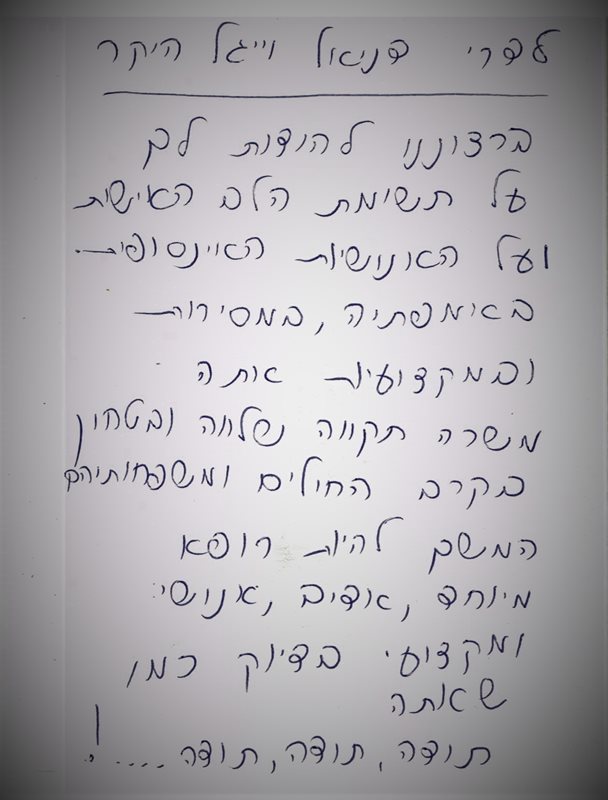 לפרופ׳ דניאל וייגל היקר
ברצוננו להודות לך
על תשימת הלב האישית
ועל האנושיות האינסופית.
באימפתיה, במסירות
ובמקצועיות אתה
משרה תקווה נשלווה ובטחון
בקרב החיילים ומשפחותיהם
המשך להיות רופא
מיוחד, אדיב, אנושי
ומקצועי בדיוק כמו
שאתה
תודה, תודה, תודה ....!